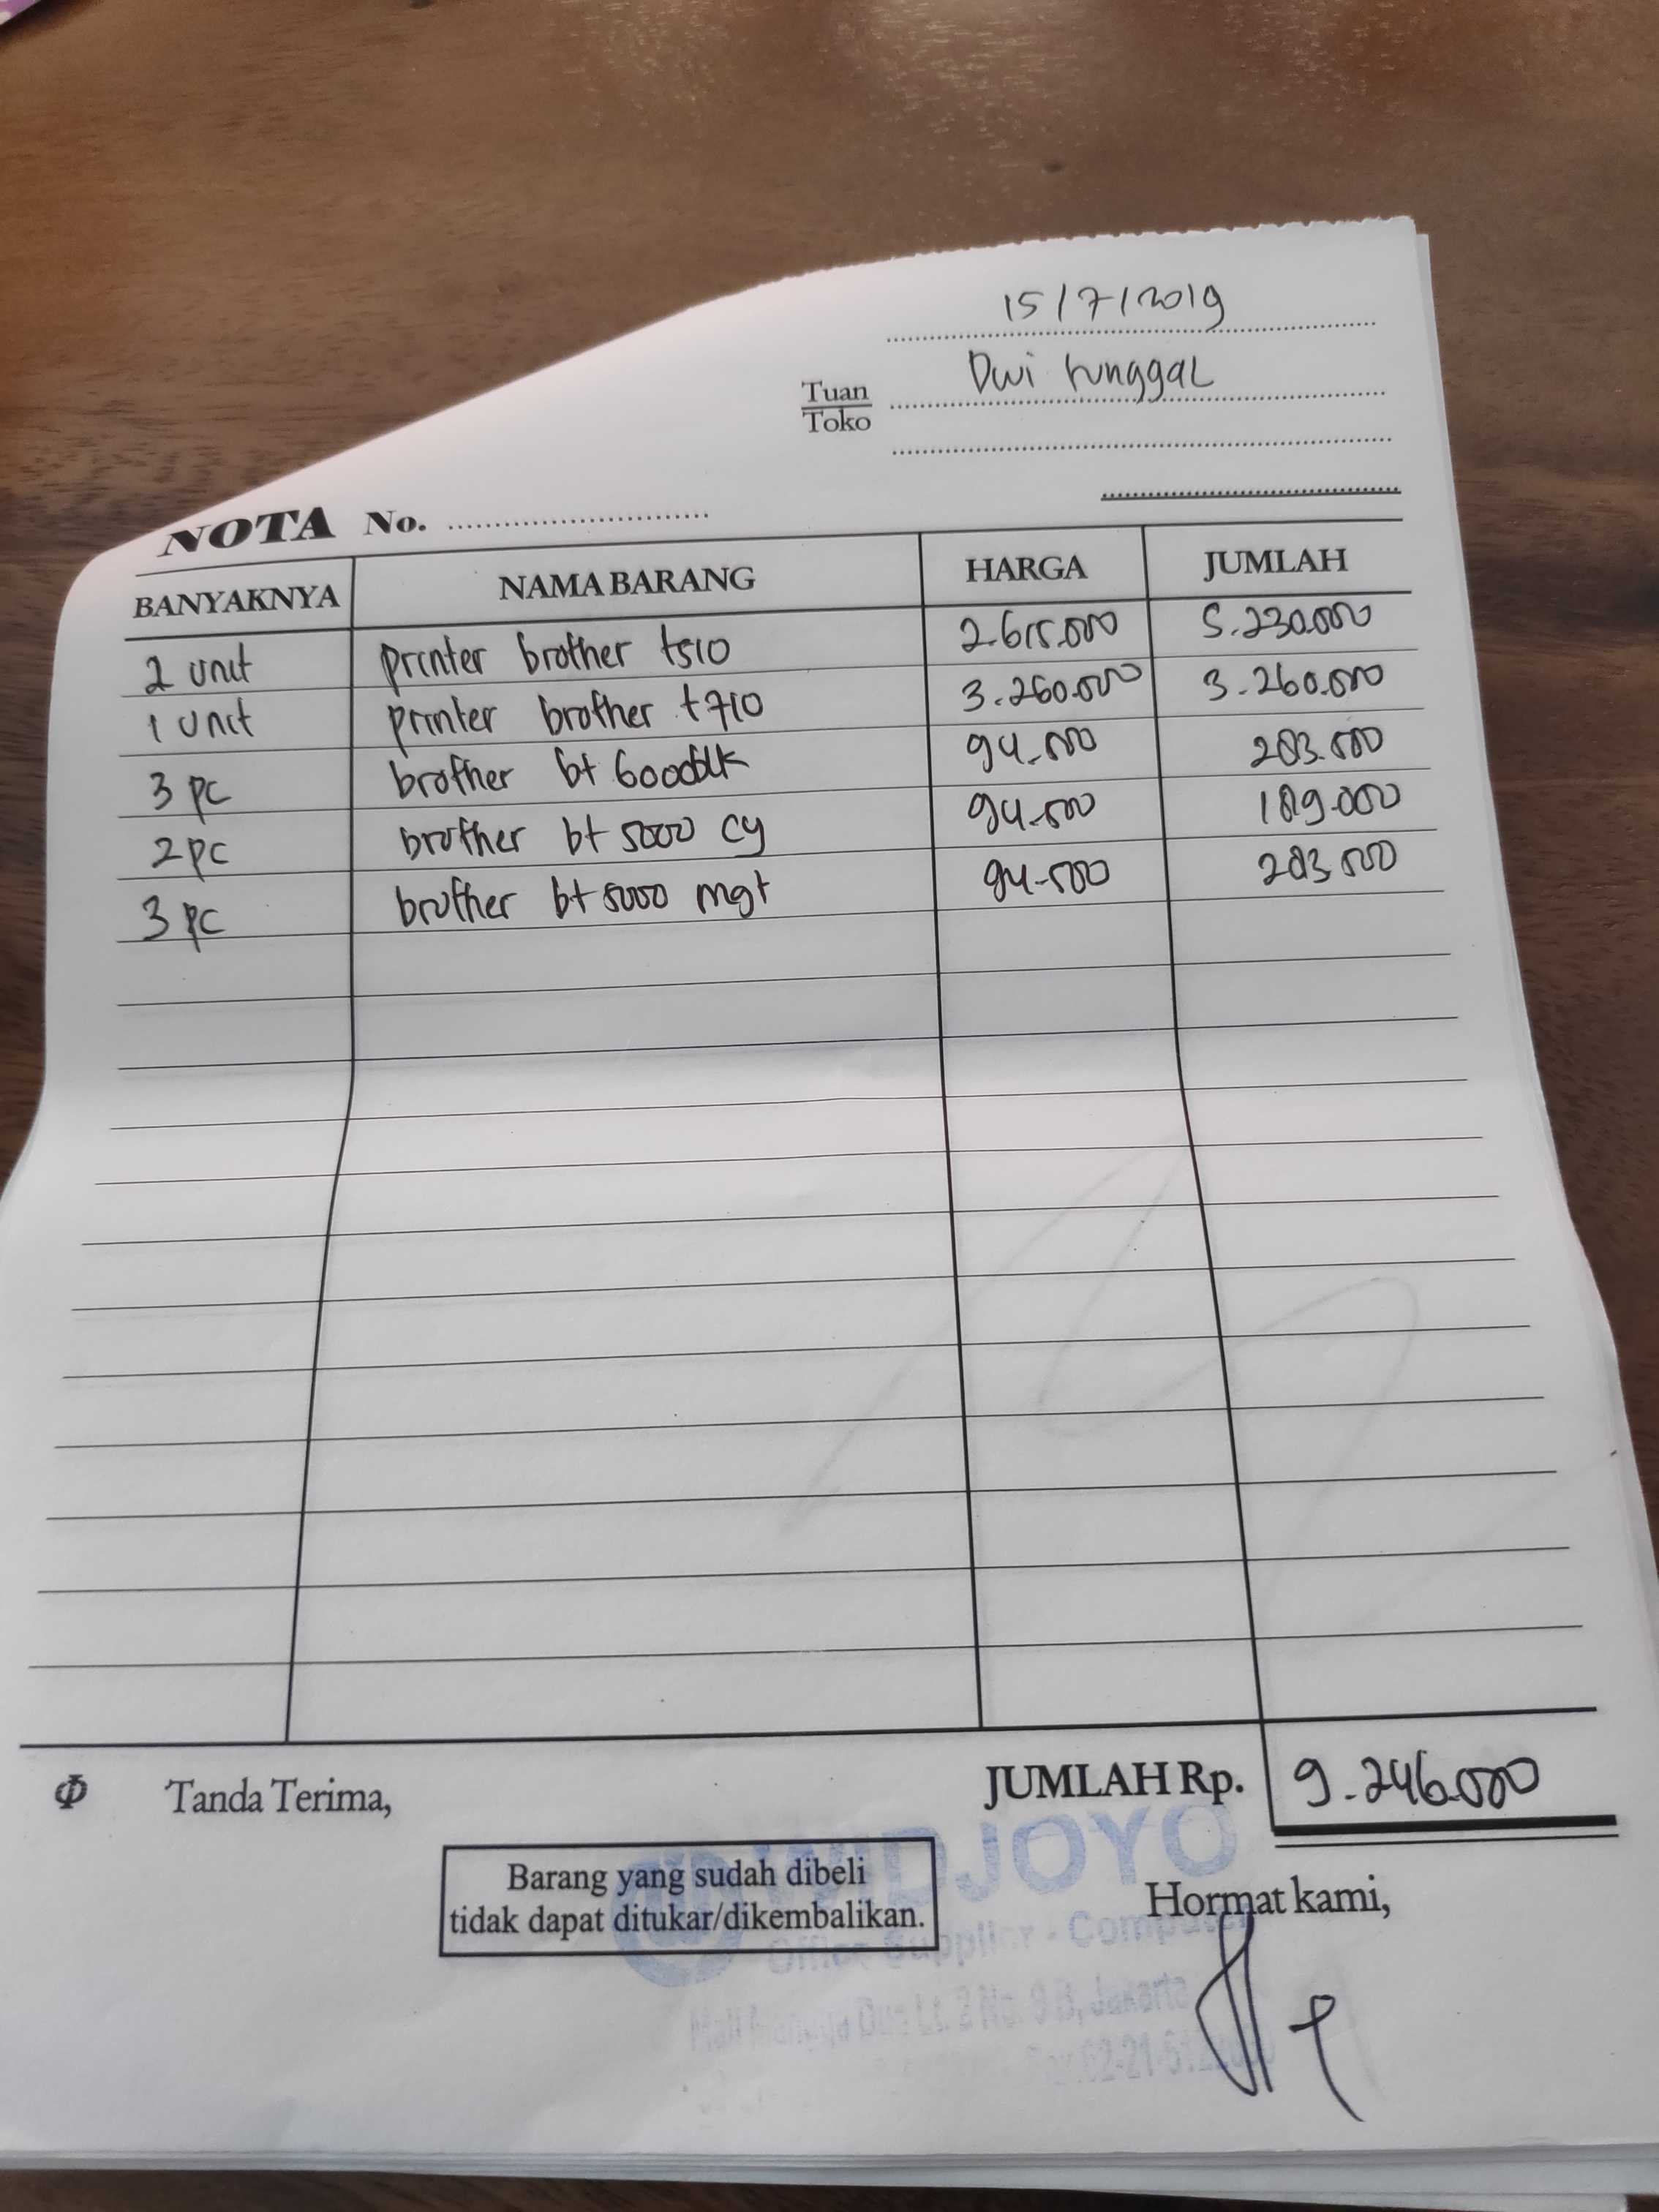 15/7/2019
Tuan
Toko
Dwi tunggal
NOTA No.
BANYAKNYA NAMA BARANG HARGA JUMLAH
2 unit printer brother t510 2.615.000 5.230.000
1 unit printer brother t710 3.260.000 3.260.000
3 pc brother bt 6000blk 94.500 283.500
2 pc brother bt 5000 cy 94.500 189.000
3 pc brother bt 5000 mgt 94.500 283.500
JUMLAH Rp. 9.246.000
Tanda Terima,
Barang yang sudah dibeli
tidak dapat ditukar/dikembalikan.
Hormat kami,
WIDJOYO
Office Supplier - Computer
Mall Mangga Dua Lt. 2 No. 9 B, Jakarta